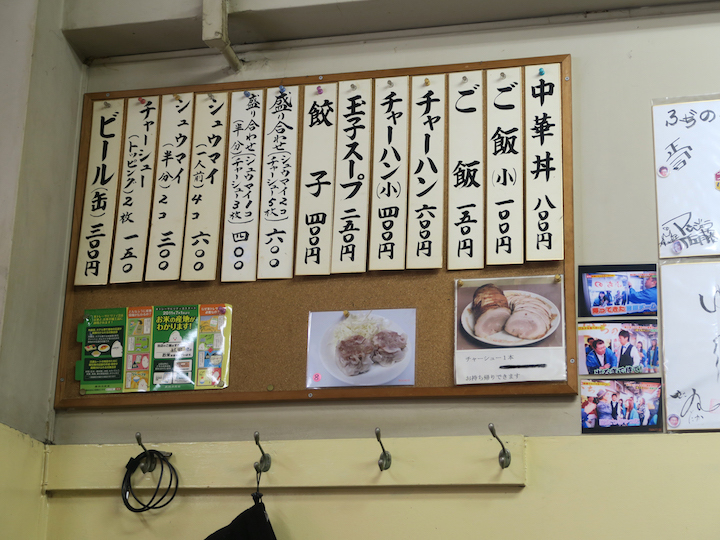 中華丼 八〇〇円
ご飯(小) 一〇〇円
ご飯 一五〇円
チャーハン 六〇〇円
チャーハン(小) 四〇〇円
玉子スープ 二五〇円
餃子 四〇〇円
盛り合わせ(シュウマイ2コ チャーシュー5枚) 六〇〇
盛り合わせ(半分)(シュウマイ1コ チャーシュー3枚) 四〇〇
シュウマイ(一人前)4コ 六〇〇
シュウマイ(半分)2コ 三〇〇
チャーシュー(トッピング)2枚 一五〇
ビール(缶) 三〇〇円
お米の産地が
わかります!
チャーシュー1本
お持ち帰りできます
ふぢの